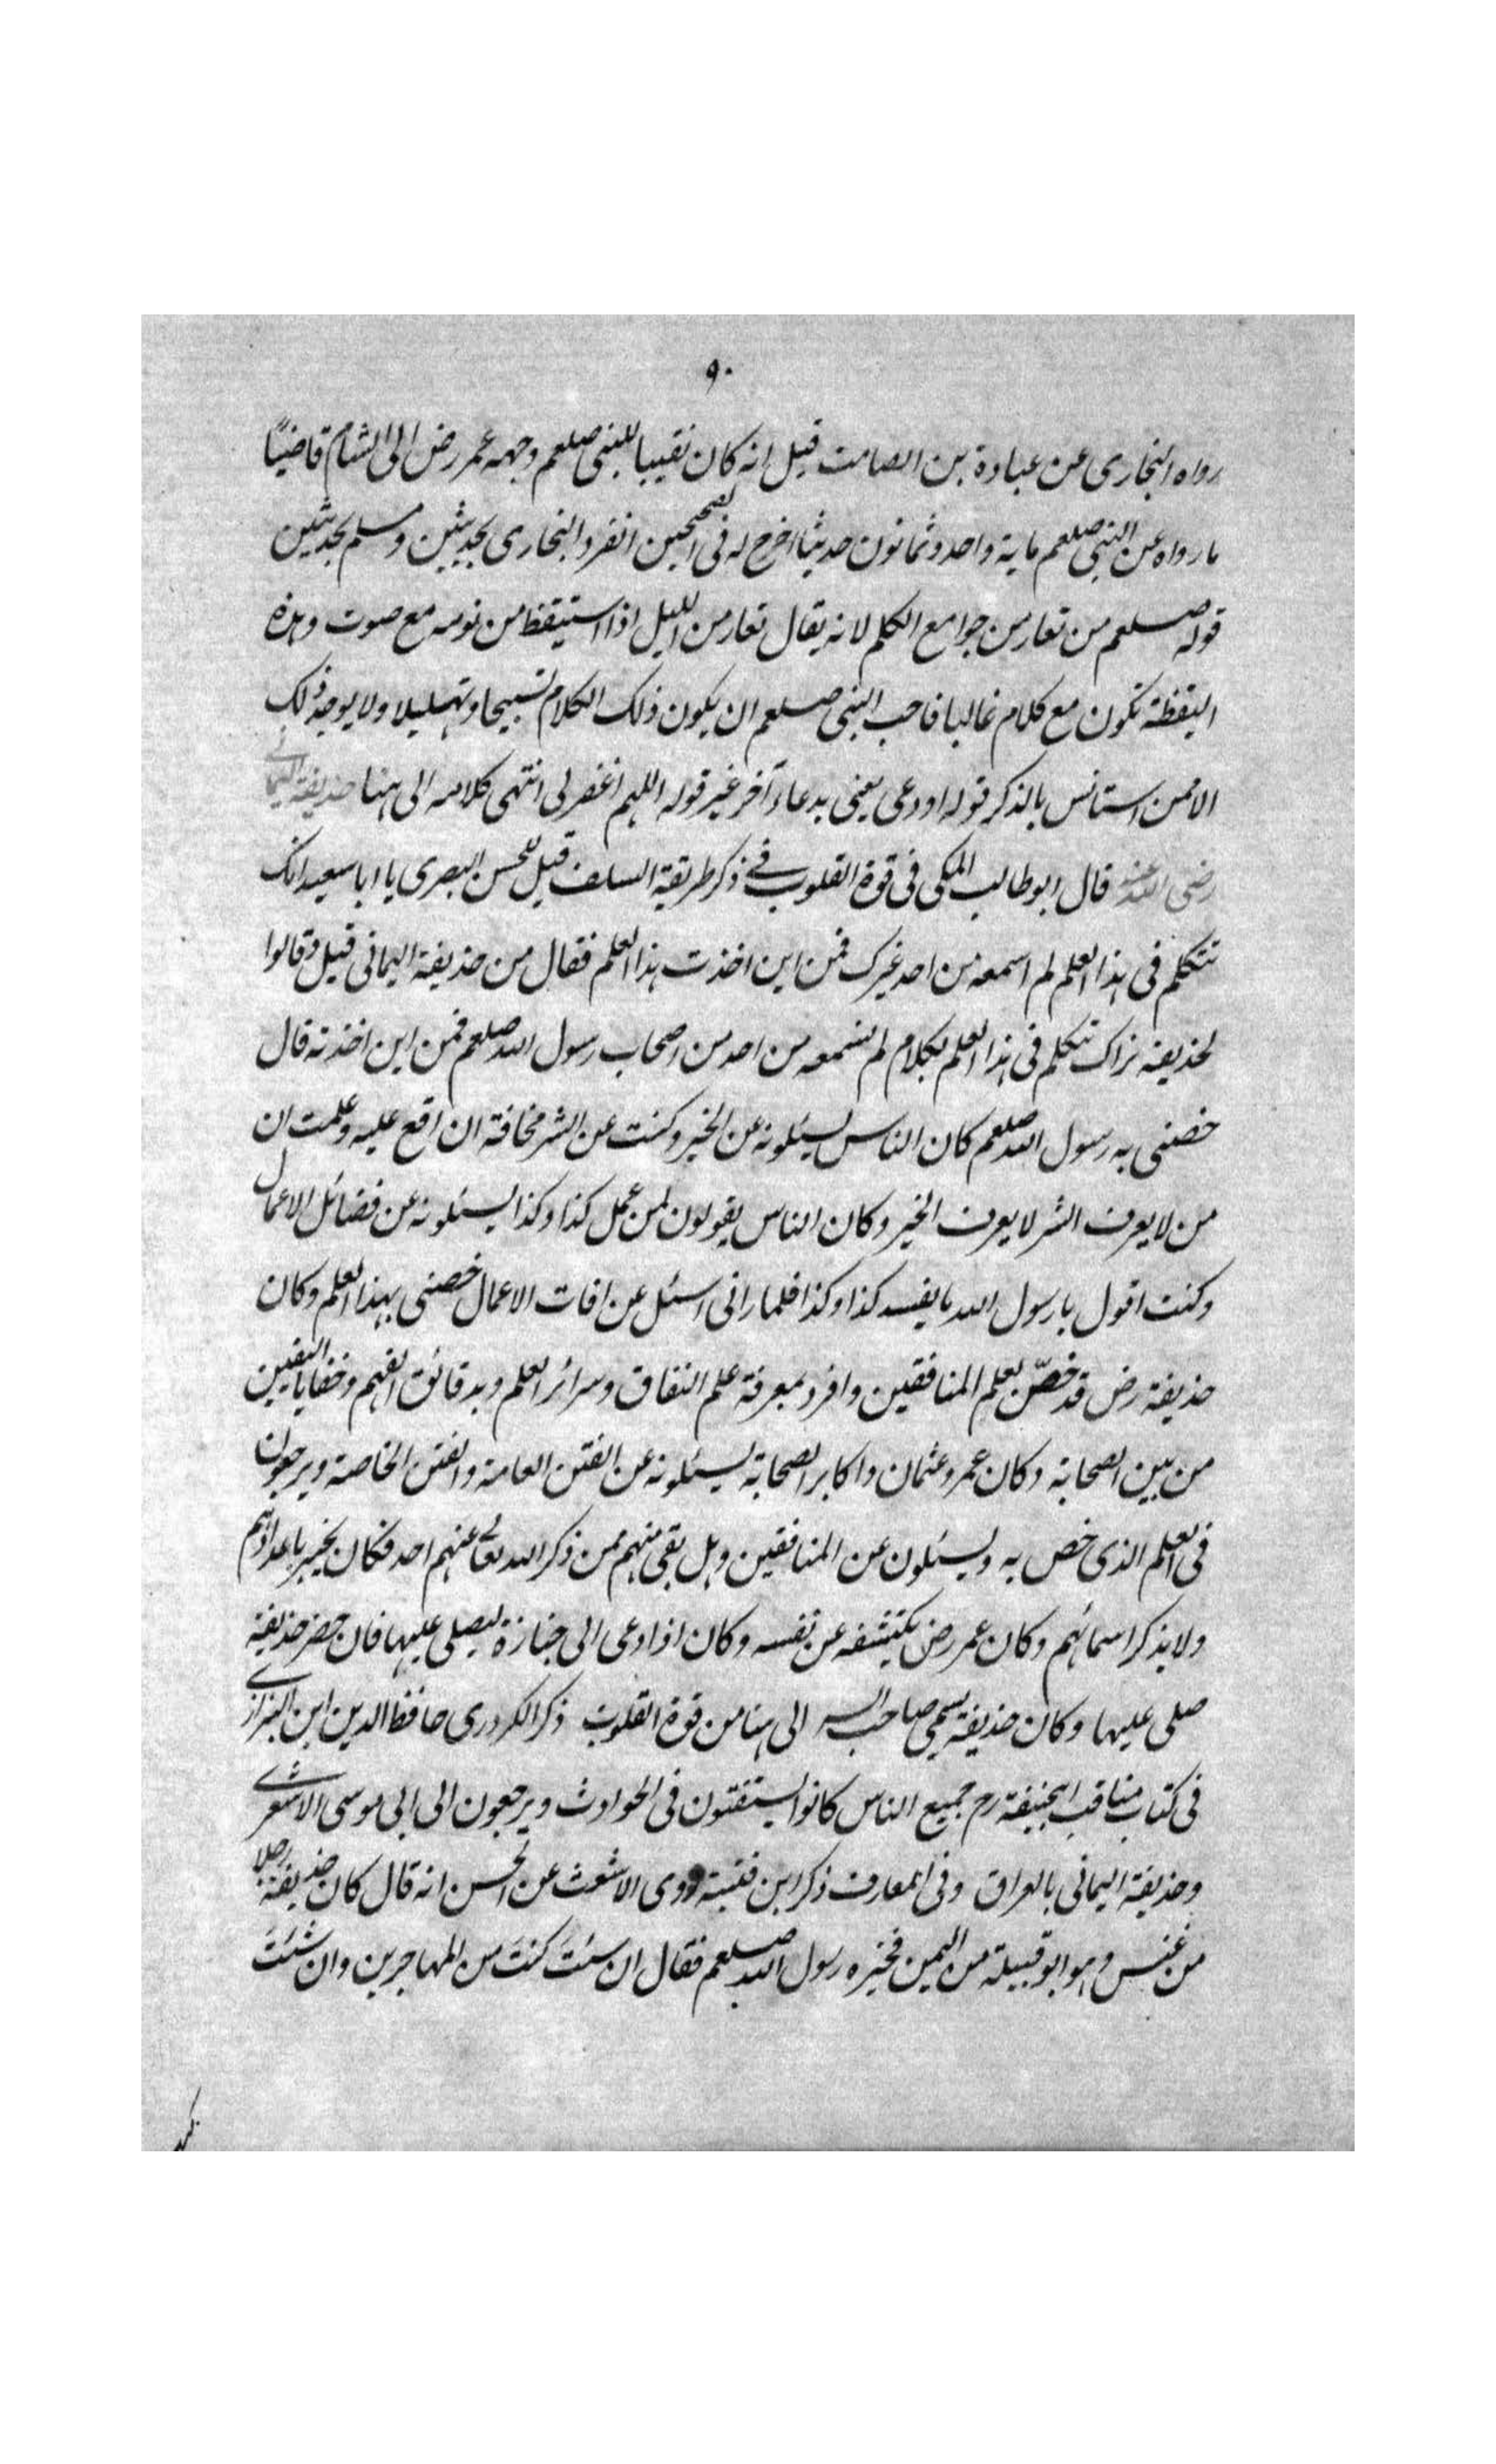 ٩٠
رواه البخارى عن عبادة بن الصامت قيل انه كان نقيبا للنبى صلعم وجهه عمر رض الى الشام قاضيًا
ما رواه عن النبى صلعم ماية واحد وثمانون حديثا اخرج له فى الصحيحين انفرد البخارى بحديثين ومسلم بحديثين
قوله صلعم من تعار من جوامع الكلم لانه يقال تعار من الليل اذا استيقظ من نومه مع صوت وهذه
اليقظة تكون مع كلام غالبا فاحب النبى صلعم ان يكون ذلك الكلام تسبيحا وتهليلا ولا يوجد ذلك
الا ممن استانس بالذكر قوله اودعى يعنى بدعاء آخر غير قوله اللهم اغفر لى انتهى كلامه الى هنا حذيفة اليمانى
رضى الله عنه قال ابو طالب المكى فى قوة القلوب فى ذكر طريقة السلف قيل للحسن البصرى يا ابا سعيد انك
تتكلم فى هذا العلم لم اسمعه من احد غيرك فمن اين اخذت هذا العلم فقال من حذيفة اليمانى قيل وقالوا
لحذيفة نراك تتكلم فى هذا العلم بكلام لم نسمعه من احد من اصحاب رسول الله صلعم فمن اين اخذته قال
خصنى به رسول الله صلعم كان الناس يسئلونه عن الخير وكنت عن الشر مخافة ان اقع عليه وعلمت ان
من لا يعرف الشر لا يعرف الخير وكان الناس يقولون لمن عمل كذا وكذا يسئلونه عن فضائل الاعمال
وكنت اقول يا رسول الله ما يفسد كذا وكذا فلما رانى اسئل عن افات الاعمال خصنى بهذا العلم وكان
حذيفة رض قد خصّ بعلم المنافقين وافرد بمعرفة علم النفاق وسرائر العلم وبدقائق الفهم وخفايا اليقين
من بين الصحابة وكان عمر وعثمان واكابر الصحابة يسئلونه عن الفتن العامة والفتن الخاصة ويرجعون
فى العلم الذى خص به ويسئلون عن المنافقين وهل بقى منهم ممن ذكر الله تعالى عنهم احد فكان يخبر باعدادهم
ولا يذكر اسمائهم وكان عمر رض يكتشفه عن نفسه وكان اذا دعى الى جنازة ليصلى عليها فان حضر حذيفة
صلى عليها وكان حذيفة يسمى صاحب السر الى هنا من قوة القلوب ذكر الكردرى حافظ الدين ابن البزازى
فى كتاب مناقب ابيحنيفة رح جميع الناس كانوا يستفتون فى الحوادث ويرجعون الى ابى موسى الاشعرى
وحذيفة اليمانى بالعراق وفى المعارف ذكر ابن قتيبة روى الاشعث عن الحسن انه قال كان حذيفة رجلا
من عبس وهو ابو قبيلة من اليمن فخيره رسول الله صلعم فقال ان شئتَ كنتَ من المهاجرين وان شئتَ